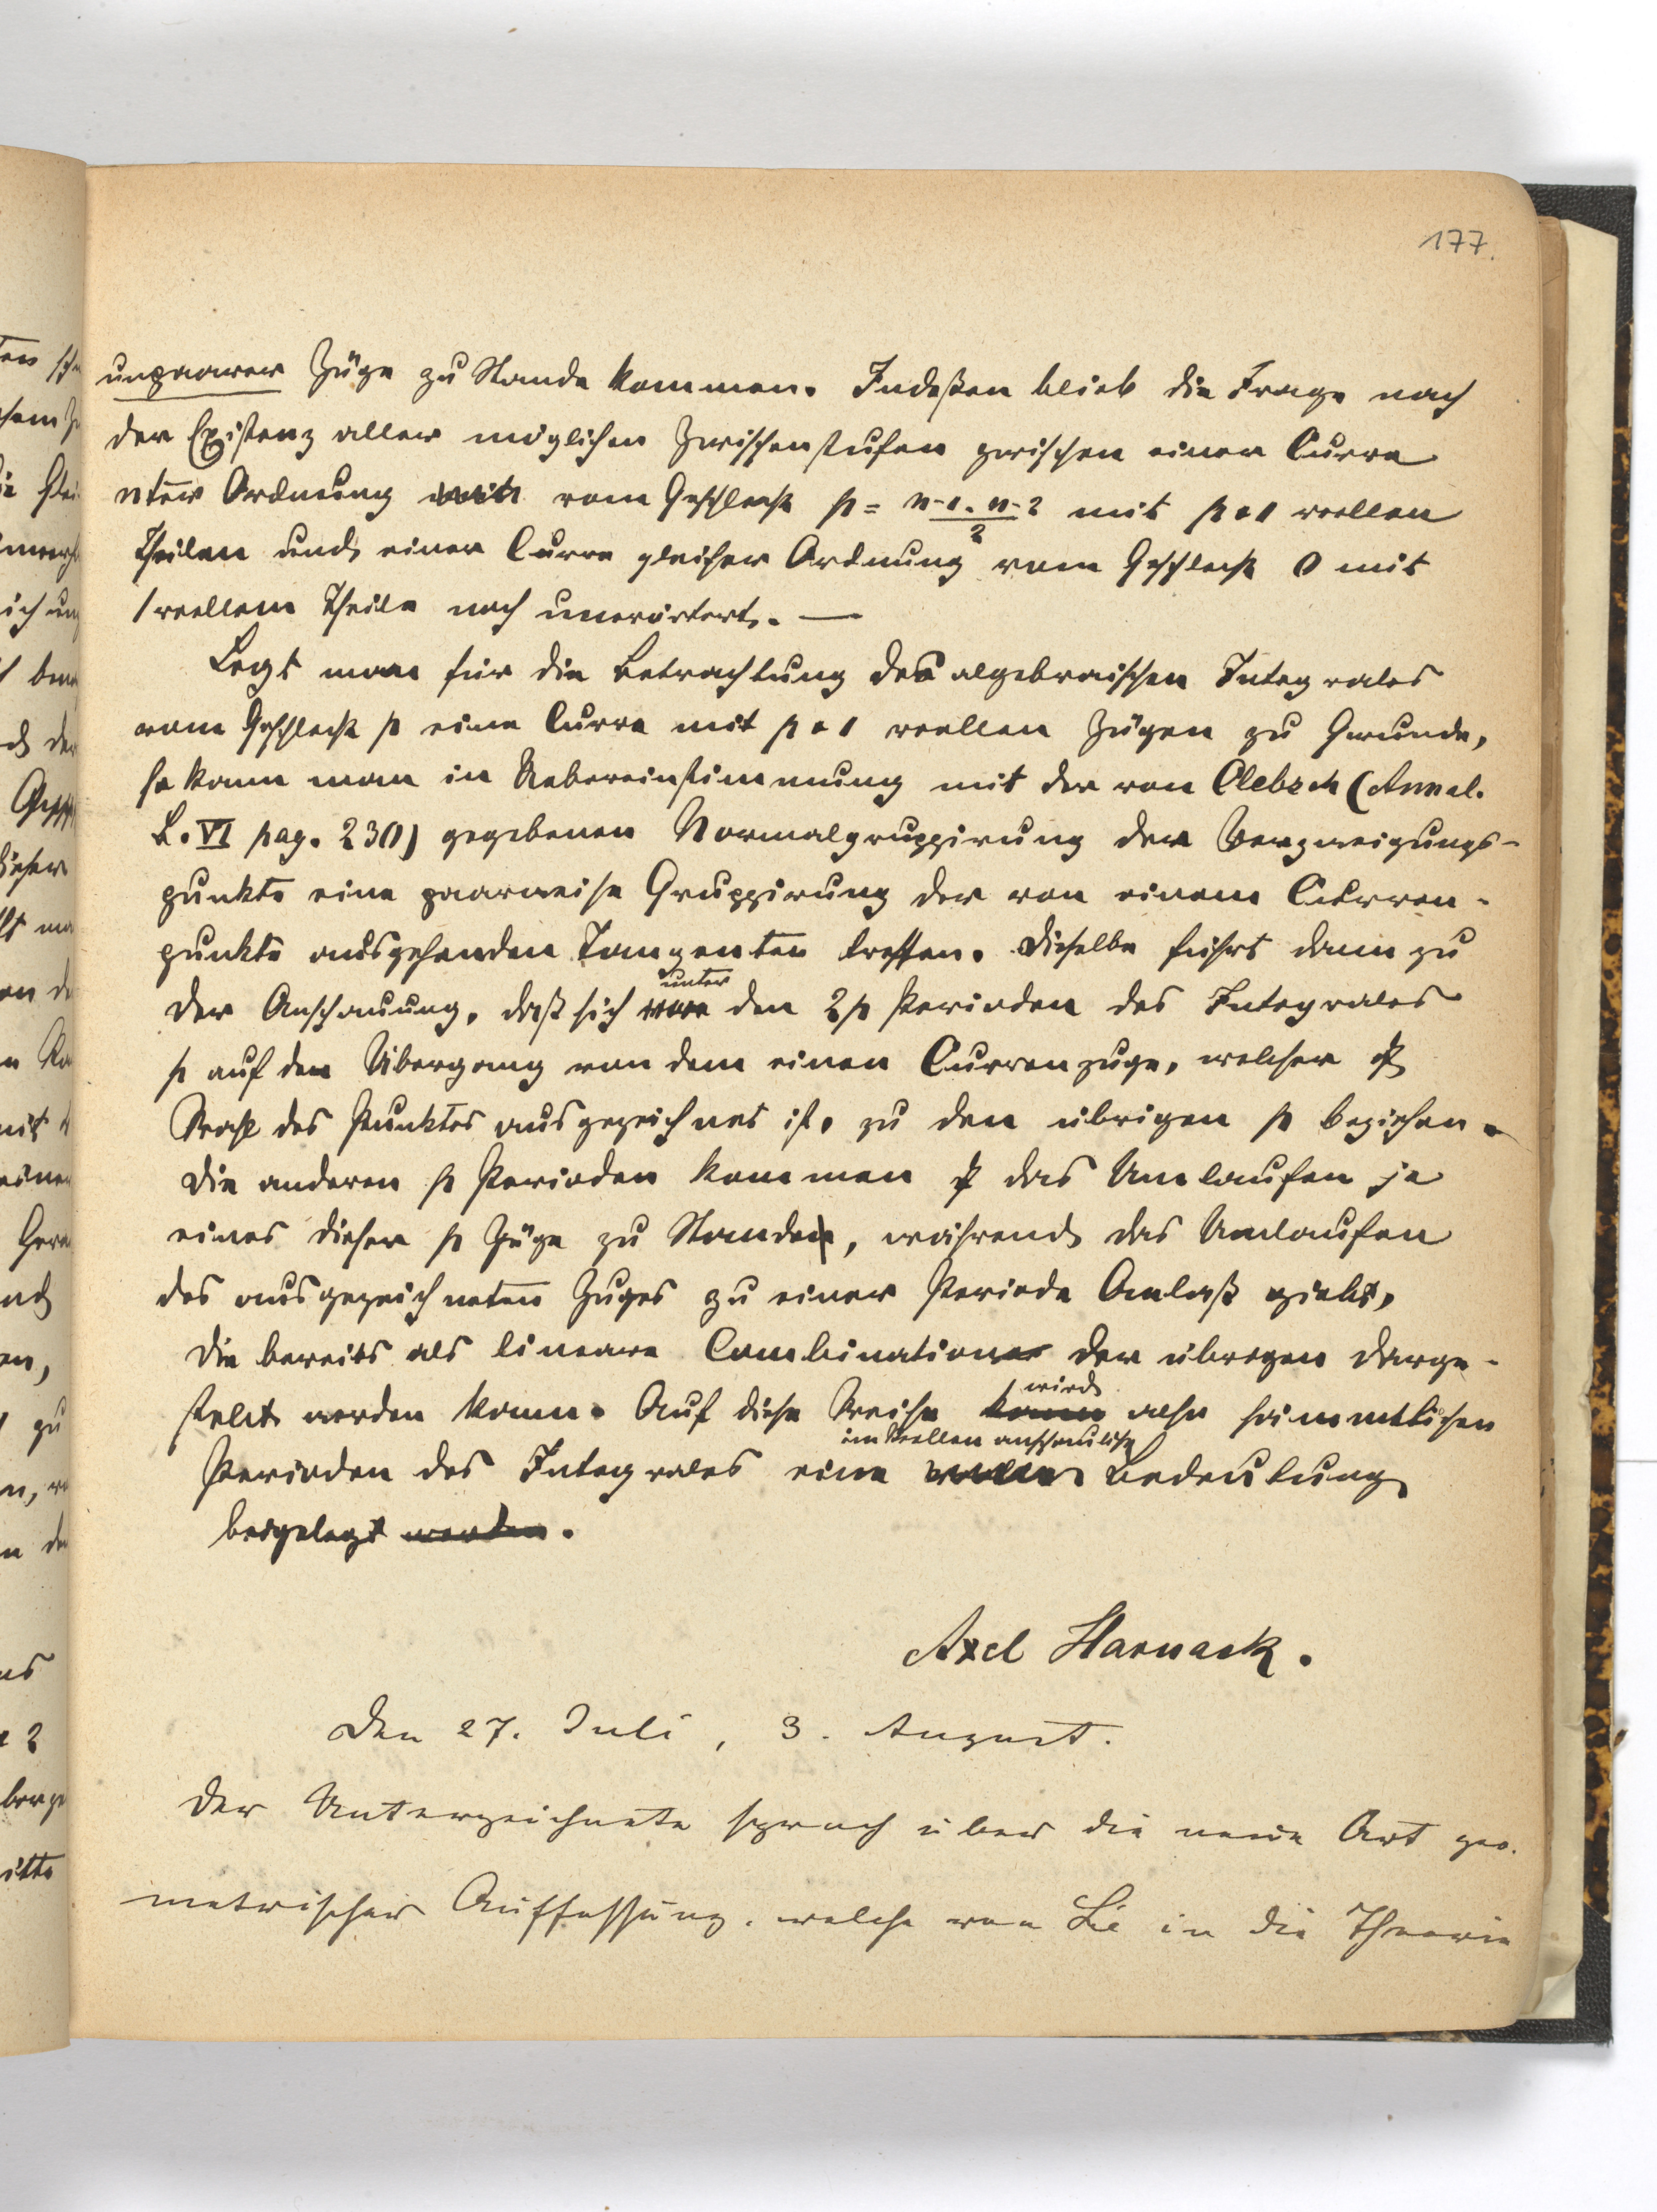 177.
unpaarer Züge zu Stande kommen. Indeßen blieb die Frage nach
der Existenz aller möglichen Zwischenstufen zwischen einer Curve
nter Ordnung vom Geschlecht p = n-1. n-2 / 2 mit p+1 reellen
Theilen und einer Curve gleicher Ordnung vom Geschlecht 0 mit
1 reellem Theile noch unerörtert. —
Legt man für die Betrachtung des algebraischen Integrales
vom Geschlecht p eine Curve mit p+1 reellen Zügen zu Grunde,
so kann man in Uebereinstimmung mit der von Clebsch (Annal.
B. VI pag. 230) gegebenen Normalgruppirung der Verzweigungs-
punkte eine paarweise Gruppirung der von einem Curven-
punkte ausgehenden Tangenten treffen. Dieselbe führt dann zu
der Anschauung, daß sich unter den 2p Perioden des Integrales
p auf den Übergang von dem einen Curvenzuge, welcher
des Punktes ausgezeichnet ist, zu den übrigen p beziehen.
Die anderen p Perioden kommen das Umlaufen je
eines dieser p Züge zu Stande, während das Umlaufen
des ausgezeichneten Zuges zu einer Periode Anlaß giebt,
die bereits als lineare Combination der übrigen darge-
stellt werden kann. Auf diese Weise kann wird also sämmtlichen
Perioden des Integrales eine im Reellen anschauliche Bedeutung
beigelegt werden.
Axel Harnack.
Den 27. Juli, 3. August.
Der Unterzeichnete sprach über die neue Art geo-
metrischer Auffassung, welche von Lie in die Theorie